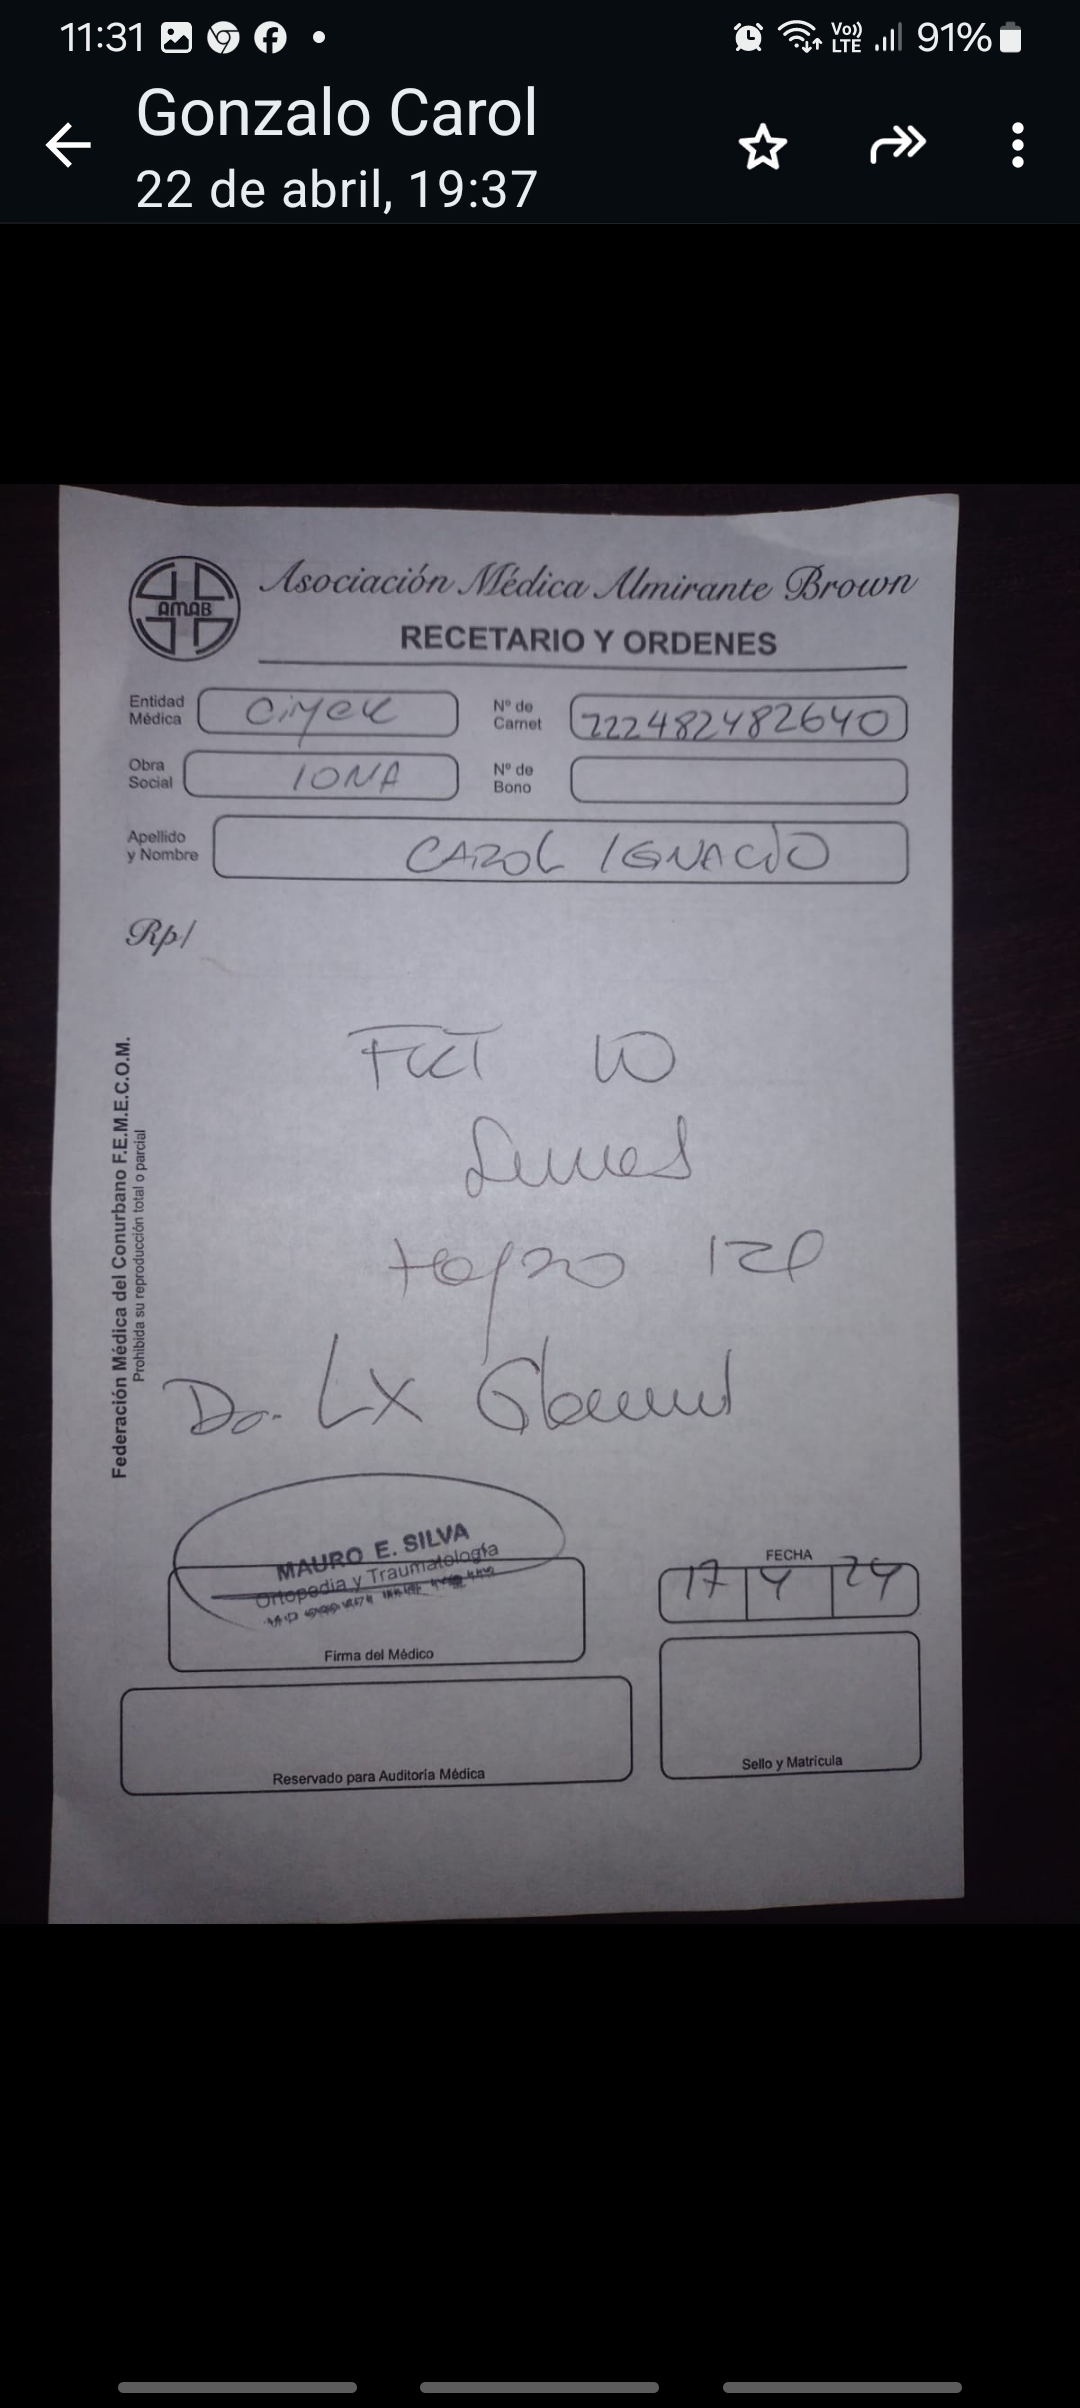 11:31
Vo)) LTE 91%
Gonzalo Carol
22 de abril, 19:37
AMAB
Asociación Médica Almirante Brown
RECETARIO Y ORDENES
Entidad Médica
Nº de Carnet 222482482640
Obra Social IONA
Nº de Bono
Apellido y Nombre CAROL IGNACIO
Rp/
FKT 10
Federación Médica del Conurbano F.E.M.E.C.O.M.
Prohibida su reproducción total o parcial
Dx. LX
MAURO E. SILVA
Ortopedia y Traumatología
Firma del Médico
FECHA
17 4 24
Reservado para Auditoría Médica
Sello y Matrícula